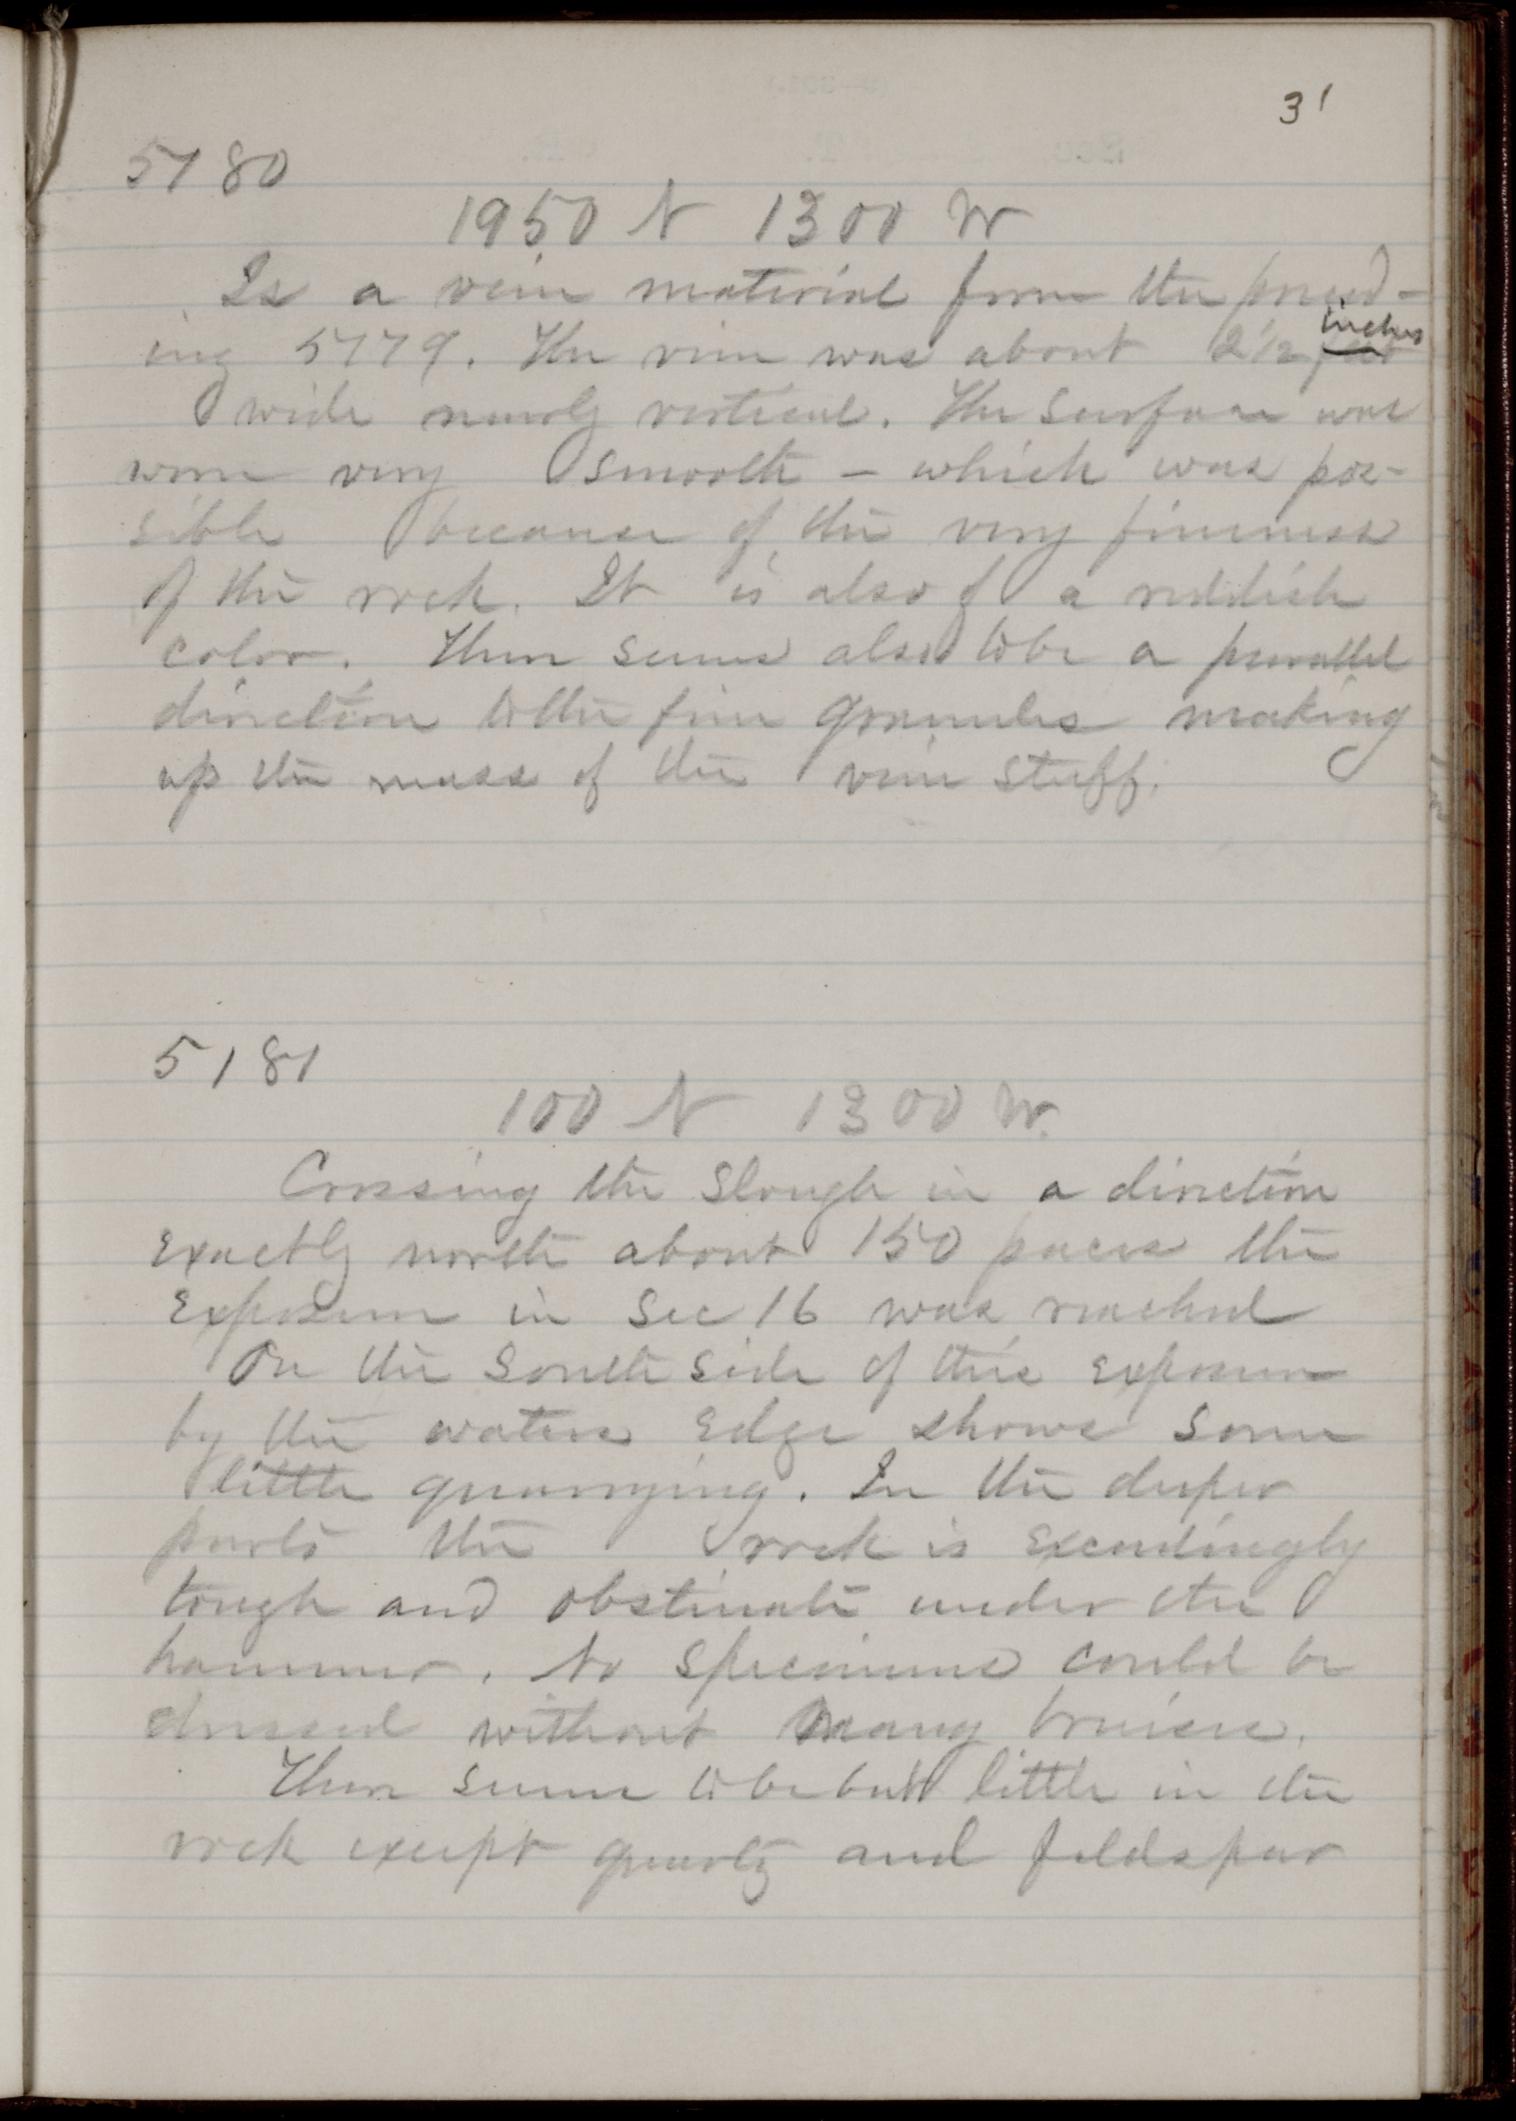 31
5180
1950 N 1300 W
Is a vein material from the preced-
ing 5179. The vein was about 2 1/2 inches
wide nearly vertical. The surface was
worn very smooth - which was pos-
sible because of the very fineness
of the rock. It is also of a reddish
color. There seems also to be a parallel
direction to the fine granules making
up the mass of the vein stuff.
5181
100 N 1300 W.
Crossing the Slough in a direction
exactly north about 150 paces the
exposure in Sec 16 was reached
On the South side of this exposure
by the waters edge shows some
little quarrying. In the deeper
parts the rock is exceedingly
tough and obstinate under the
hammer. No specimens could be
dressed without many bruises.
There seems to be but little in the
rock except quartz and feldspar